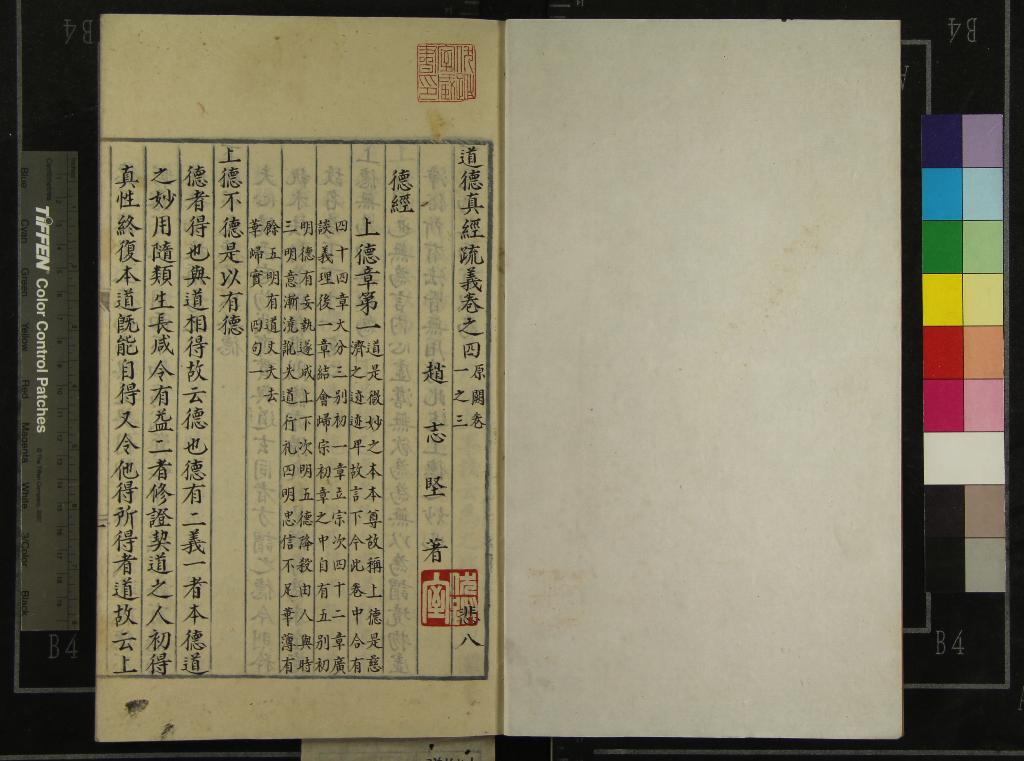 道德真經疏義卷之四 原闕卷一之三 悲八
趙志堅著
德經
上德章第一
道是微妙之本本尊故稱上德是慈
濟之迹迹卑故言下今此卷中合有
四十四章大分三別初一章立宗次四十二章廣
談義理後一章結會歸宗初章之中自有五別初
明德有妄執遂成上下次明五德降殺由人與時
三明意漸澆訛失道行礼四明忠信不足華薄有
餘五明有道丈夫去
華歸實 四句一
上德不德是以有德
德者得也與道相得故云德也德有二義一者本德道
之妙用隨類生長咸令有益二者修證契道之人初得
真性終復本道既能自得又令他得所得者道故云上
B4
B4
B4
B4
TIFFEN Color Control Patches
Blue
Cyan
Green
Yellow
Red
Magenta
White
3/Color
Black